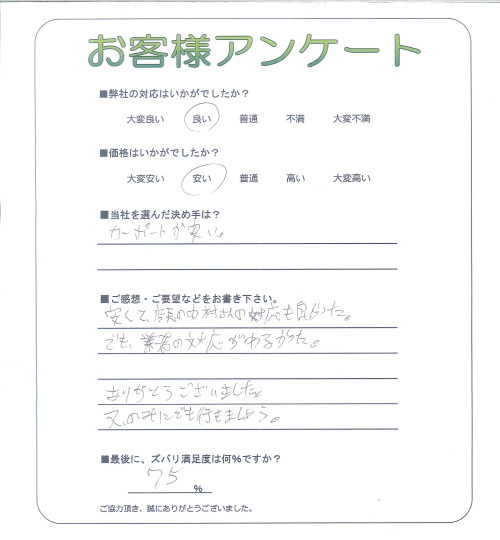 お客様アンケート
■弊社の対応はいかがでしたか？
大変良い 良い 普通 不満 大変不満
■価格はいかがでしたか？
大変安い 安い 普通 高い 大変高い
■当社を選んだ決め手は？
カーポートが安い。
■ご感想・ご要望などをお書き下さい。
安くて、店長の中村さんの対応も良かった。
でも、業者の対応がわるかった。
ありがとうございました。
又、のみにでも行きましょう。
■最後に、ズバリ満足度は何％ですか？
75 ％
ご協力頂き、誠にありがとうございました。